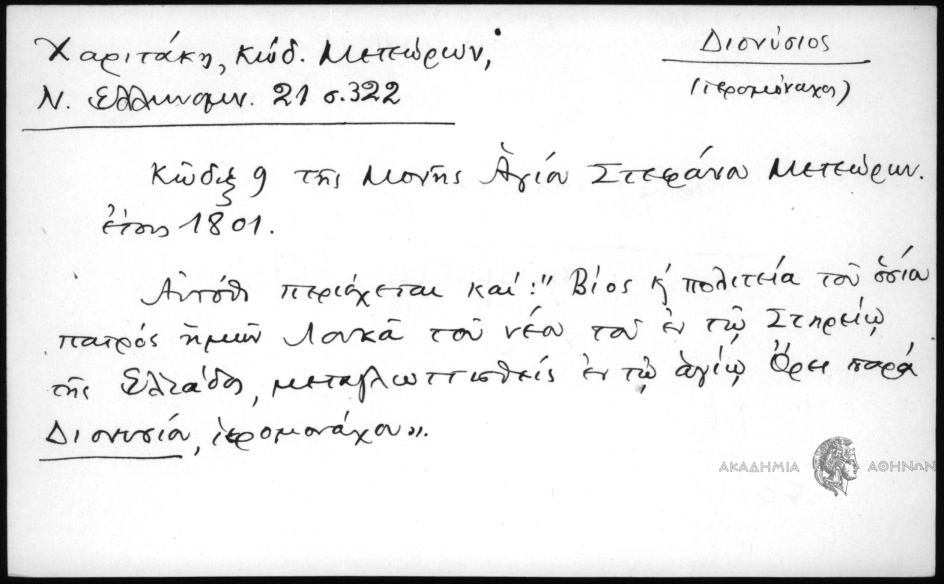 Χαριτάκη, Κώδ. Μετεώρων,
Ν. Ελληνομν. 21 σ. 322
Διονύσιος
(ιερομόναχος)
Κῶδιξ 9 τῆς Μονῆς Ἁγίου Στεφάνου Μετεώρων.
ἔτους 1801.
Αὐτόθι περιέχεται καί: "Βίος κ̓ πολιτεία τοῦ ὁσίου
πατρός ἡμῶν Λουκᾶ τοῦ νέου τοῦ ἐν τῷ Στηρείῳ
τῆς Ἑλλάδος, μεταγλωττισθείς ἐν τῷ ἁγίῳ Ὄρει παρά
Διονυσίου, ἱερομονάχου».
ΑΚΑΔΗΜΙΑ ΑΘΗΝΩΝ